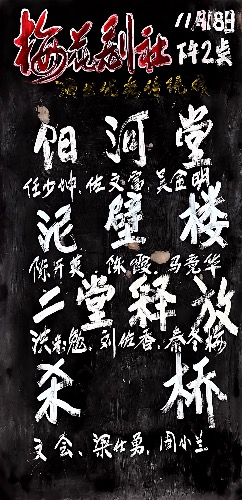 梅花剧社
11月18日
下午2点
阳河堂
任少坤、佐文富、吴金明
泥壁楼
陈开英、陈霞、马竞华
二堂释放
刘佐香、秦冬梅
杀桥
文会、梁仕勇、周小兰